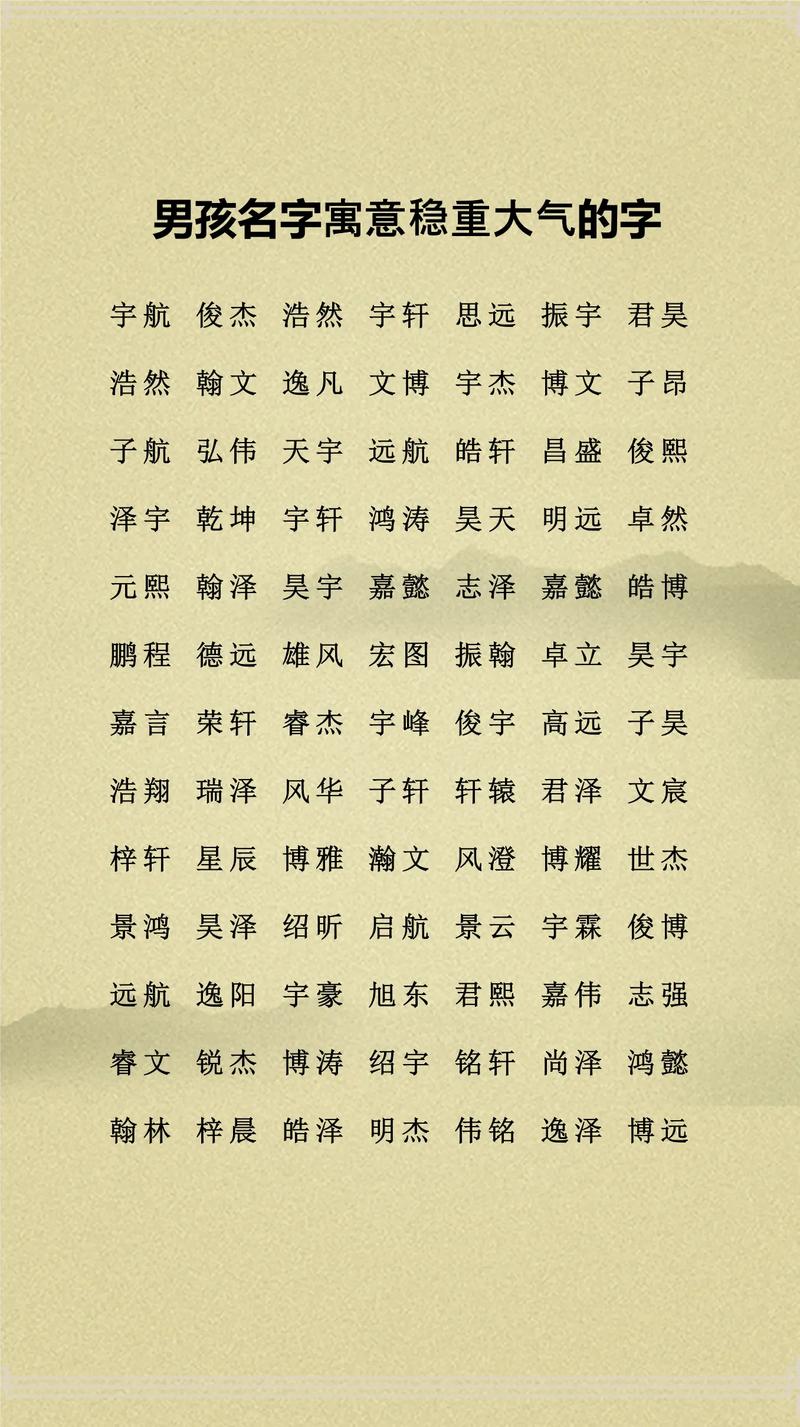 男孩名字寓意稳重大气的字
宇航 俊杰 浩然 宇轩 思远 振宇 君昊
浩然 翰文 逸凡 文博 宇杰 博文 子昂
子航 弘伟 天宇 远航 皓轩 昌盛 俊熙
泽宇 乾坤 宇轩 鸿涛 昊天 明远 卓然
元熙 翰泽 昊宇 嘉懿 志泽 嘉懿 皓博
鹏程 德远 雄风 宏图 振翰 卓立 昊宇
嘉言 荣轩 睿杰 宇峰 俊宇 高远 子昊
浩翔 瑞泽 风华 子轩 轩辕 君泽 文宸
梓轩 星辰 博雅 瀚文 风澄 博耀 世杰
景鸿 昊泽 绍昕 启航 景云 宇霖 俊博
远航 逸阳 宇豪 旭东 君熙 嘉伟 志强
睿文 锐杰 博涛 绍宇 铭轩 尚泽 鸿懿
翰林 梓晨 皓泽 明杰 伟铭 逸泽 博远